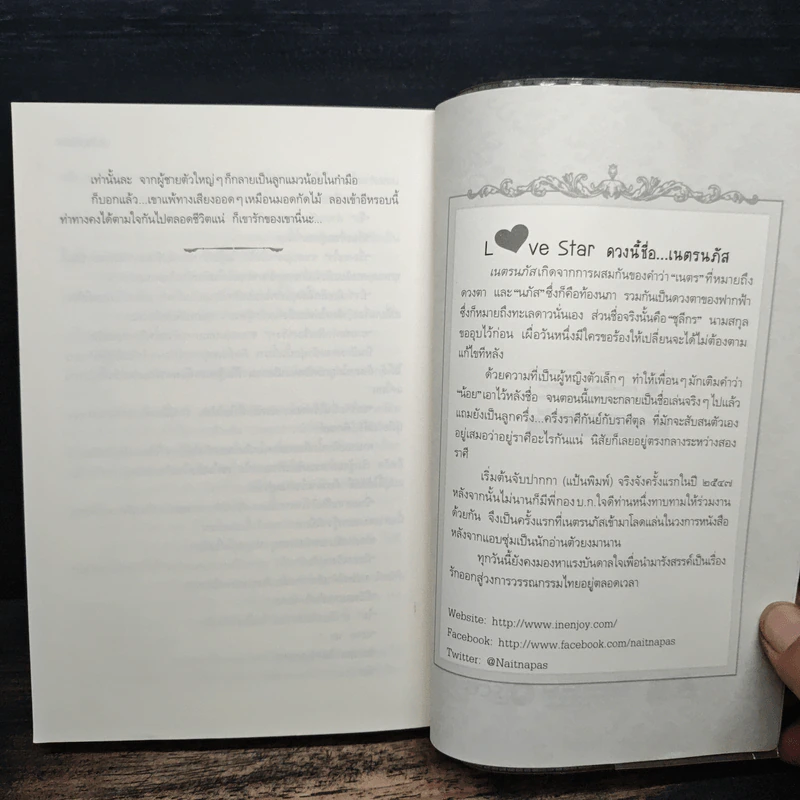 เท่านั้นละ จากผู้ชายตัวใหญ่ๆ ก็กลายเป็นลูกแมวน้อยในกำมือ
ก็บอกแล้ว...เขาแพ้ทางเสียงออดๆ เหมือนมอดกัดไม้ ลองเข้าอีหรอบนี้
ท่าทางคงได้ตามใจกันไปตลอดชีวิตแน่ ก็เขารักของเขานี่นะ...
L♥ve Star ดวงนี้ชื่อ...เนตรนภัส
เนตรนภัสเกิดจากการผสมกันของคำว่า “เนตร” ที่หมายถึง
ดวงตา และ “นภัส” ซึ่งก็คือท้องนภา รวมกันเป็นดวงตาของฟากฟ้า
ซึ่งก็หมายถึงทะเลดาวนั่นเอง ส่วนชื่อจริงนั้นคือ “ชุลีกร” นามสกุล
ขออุบไว้ก่อน เผื่อวันหนึ่งมีใครขอร้องให้เปลี่ยนจะได้ไม่ต้องตาม
แก้ไขทีหลัง
ด้วยความที่เป็นผู้หญิงตัวเล็กๆ ทำให้เพื่อนๆ มักเติมคำว่า
“น้อย” เอาไว้หลังชื่อ จนตอนนี้แทบจะกลายเป็นชื่อเล่นจริงๆ ไปแล้ว
แถมยังเป็นลูกครึ่ง...ครึ่งราศีกันย์กับราศีตุล ที่มักจะสับสนตัวเอง
อยู่เสมอว่าอยู่ราศีอะไรกันแน่ นิสัยก็เลยอยู่ตรงกลางระหว่างสอง
ราศี
เริ่มต้นจับปากกา (แป้นพิมพ์) จริงจังครั้งแรกในปี ๒๕๔๗
หลังจากนั้นไม่นานก็มีพี่กอง บ.ก. ใจดีท่านหนึ่งทาบทามให้ร่วมงาน
ด้วยกัน จึงเป็นครั้งแรกที่เนตรนภัสเข้ามาโลดแล่นในวงการหนังสือ
หลังจากแอบซุ่มเป็นนักอ่านตัวยงมานาน
ทุกวันนี้ยังคงมองหาแรงบันดาลใจเพื่อนำมารังสรรค์เป็นเรื่อง
รักออกสู่วงการวรรณกรรมไทยอยู่ตลอดเวลา
Website: http://www.inenjoy.com/
Facebook: http://www.facebook.com/naitnapas
Twitter: @Naitnapas